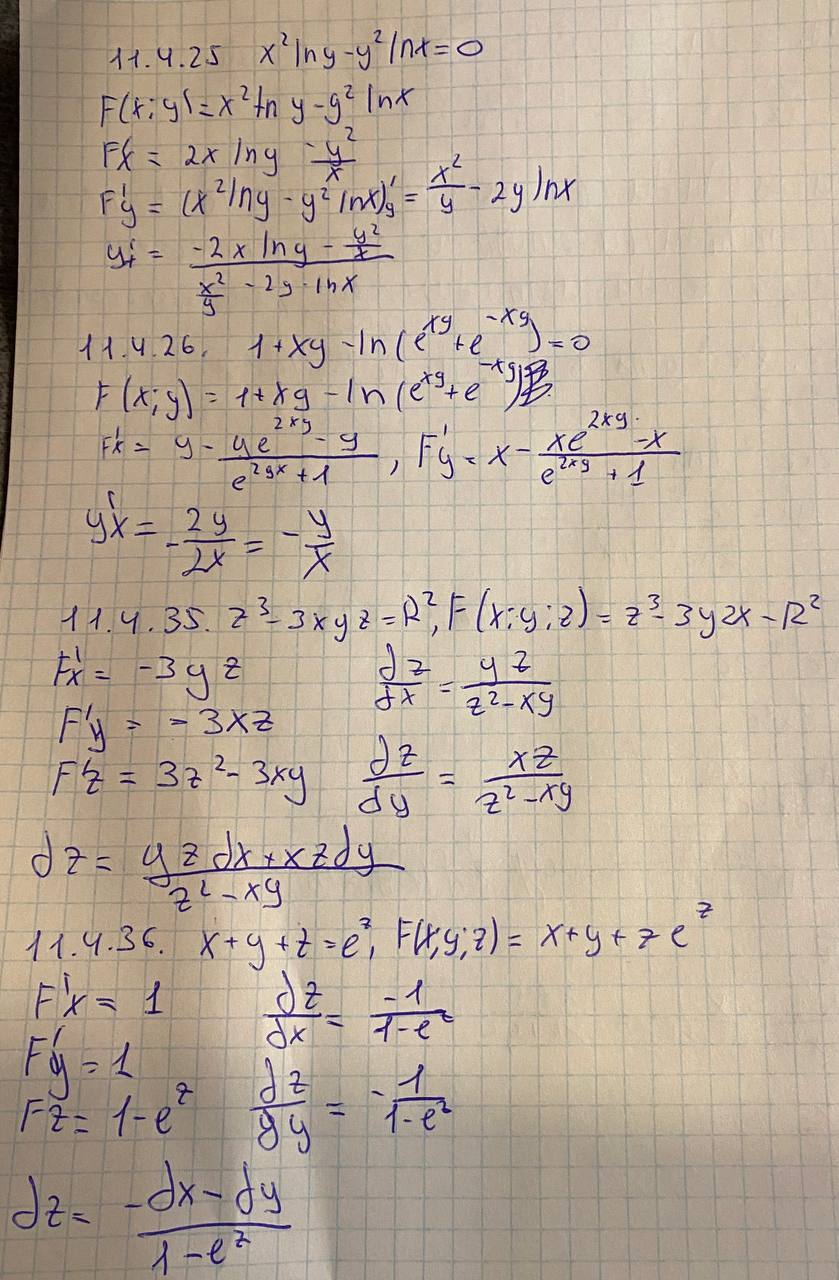 11.4.25 x²lny-y²lnx=0
F(x;y)=x²ln y-y² lnx
F'x = 2x lny -y²/x
F'y = (x²lny - y² lnx)'y = x²/y - 2y lnx
y'x = (-2x lny - y²/x)/(x²/y - 2y·lnx)
11.4.26. 1+xy-ln(e^xy+e^-xy)=0
F(x;y)=1+xy-ln(e^xy+e^-xy)
F'x = y - (ye^2xy - y)/(e^2yx+1), F'y = x - (xe^2xy - x)/(e^2xy+1)
y'x = -2y/2x = -y/x
11.4.35. z³-3xyz=R², F(x;y;z)=z³-3yzx-R²
F'x = -3yz dz/dx = yz/(z²-xy)
F'y = -3xz
F'z = 3z²-3xy dz/dy = xz/(z²-xy)
dz = (yzdx+xzdy)/(z²-xy)
11.4.36. x+y+z=e^z, F(x;y;z)=x+y+z e^z
F'x = 1 dz/dx = -1/(1-e^z)
F'y = 1
Fz = 1-e^z dz/dy = -1/(1-e^z)
dz = (-dx-dy)/(1-e^z)